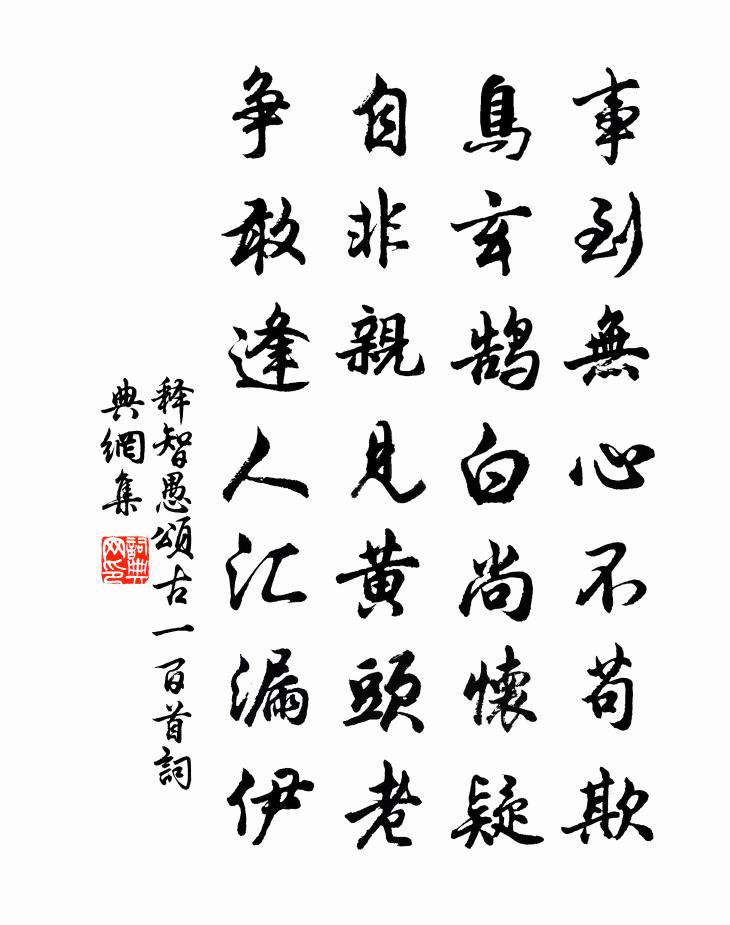 事到無心不苟欺
烏玄鵠白尚懷疑
自非親見黃頭老
爭敢逢人汇漏伊
释智愚頌古一百首詞
典網集
詞典网印